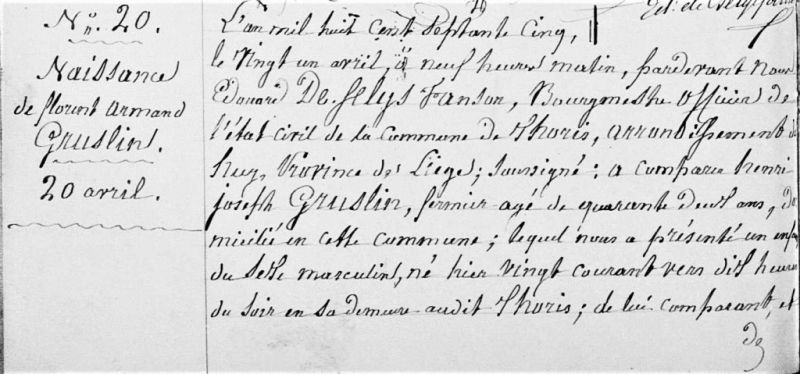 Nº. 20.
Naissance
de florent armand
Gruslin.
20 avril.
L'an mil huit cent septante cinq,
le vingt un avril, à neuf heures matin, pardevant Nous
Edouard De Selys Fanson, Bourgmestre officier de
l'état civil de la commune de Thoris, arrondissement
huy, Province de Liége; soussigné; a comparu henri
joseph Gruslin, fermier agé de quarante deux ans, do
micilié en cette commune; lequel nous a présenté un enfa
du sexe masculin, né hier vingt courant vers dix heures
du soir en sa demeure audit Thoris; de lui comparant, et
de